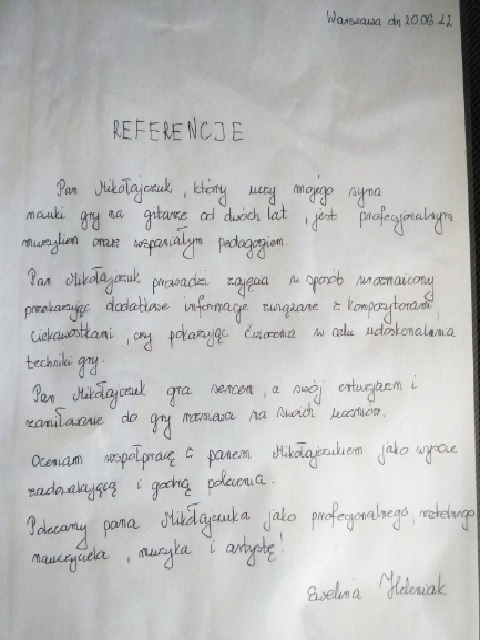 Warszawa dn 20.06.22
REFERENCJE
Pan Mikołajczuk, który uczy mojego syna
nauki gry na gitarze od dwóch lat, jest profesjonalnym
muzykiem oraz wspaniałym pedagogiem.
Pan Mikołajczuk prowadzi zajęcia w sposób urozmaicony
przekazując dodatkowe informacje związane z kompozytorami,
ciekawostkami, czy pokazując ćwiczenia w celu udoskonalenia
techniki gry.
Pan Mikołajczuk gra sercem, a swój entuzjazm i
zamiłowanie do gry przenosi na swoich uczniów.
Oceniam współpracę z panem Mikołajczukiem jako wysoce
zadowalającą i godną polecenia.
Polecamy pana Mikołajczuka jako profesjonalnego, rzetelnego
nauczyciela, muzyka i artystę!
Ewelina Heleniak